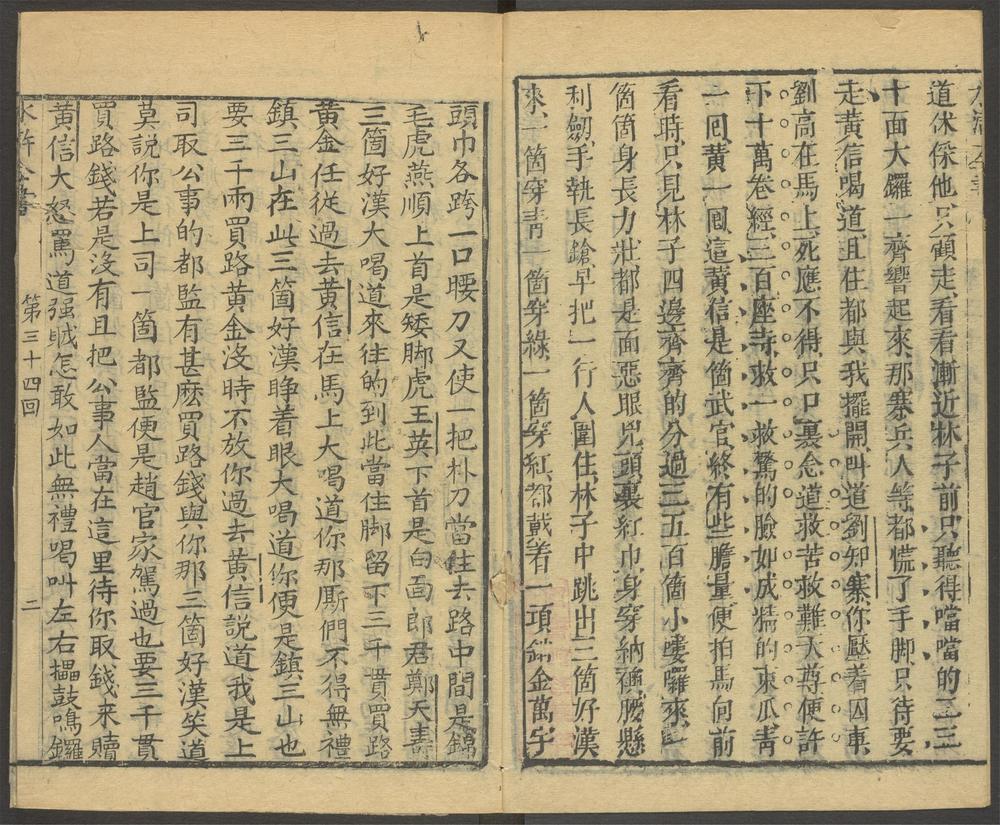 道休倸他只顧走看看漸近林子前只聽得噹噹的二三
十面大鑼一齊響起來那寨兵人等都慌了手脚只待要
走黃信喝道且住都與我擺開叫道劉知寨你壓着囚車
劉高在馬上死應不得只口裏念道救苦救難天尊便許
下十萬卷經三百座寺救一救驚的臉如成精的東瓜青
一回黃一回這黃信是箇武官終有些膽量便拍馬向前
看時只見林子四邊齊齊的分過三五百箇小嘍囉來一
箇箇身長力壯都是面惡眼兇頭裹紅巾身穿衲襖腰懸
利劒手執長鎗早把一行人圍住林子中跳出三箇好漢
來一箇穿青一箇穿綠一箇穿紅都戴着一項銷金萬字
頭巾各跨一口腰刀又使一把朴刀當住去路中間是錦
毛虎燕順上首是矮脚虎王英下首是白面郎君鄭天壽
三箇好漢大喝道來往的到此當住脚留下三千貫買路
黃金任從過去黃信在馬上大喝道你那厮們不得無禮
鎮三山在此三箇好漢睁着眼大喝道你便是鎮三山也
要三千兩買路黃金沒時不放你過去黃信說道我是上
司取公事的都監有甚麽買路錢與你那三箇好漢笑道
莫說你是上司一箇都監便是趙官家駕過也要三千貫
買路錢若是沒有且把公事人當在這里待你取錢來贖
黃信大怒罵道強賊怎敢如此無禮喝叫左右擂鼓鳴鑼
水滸全書 第三十四回 二